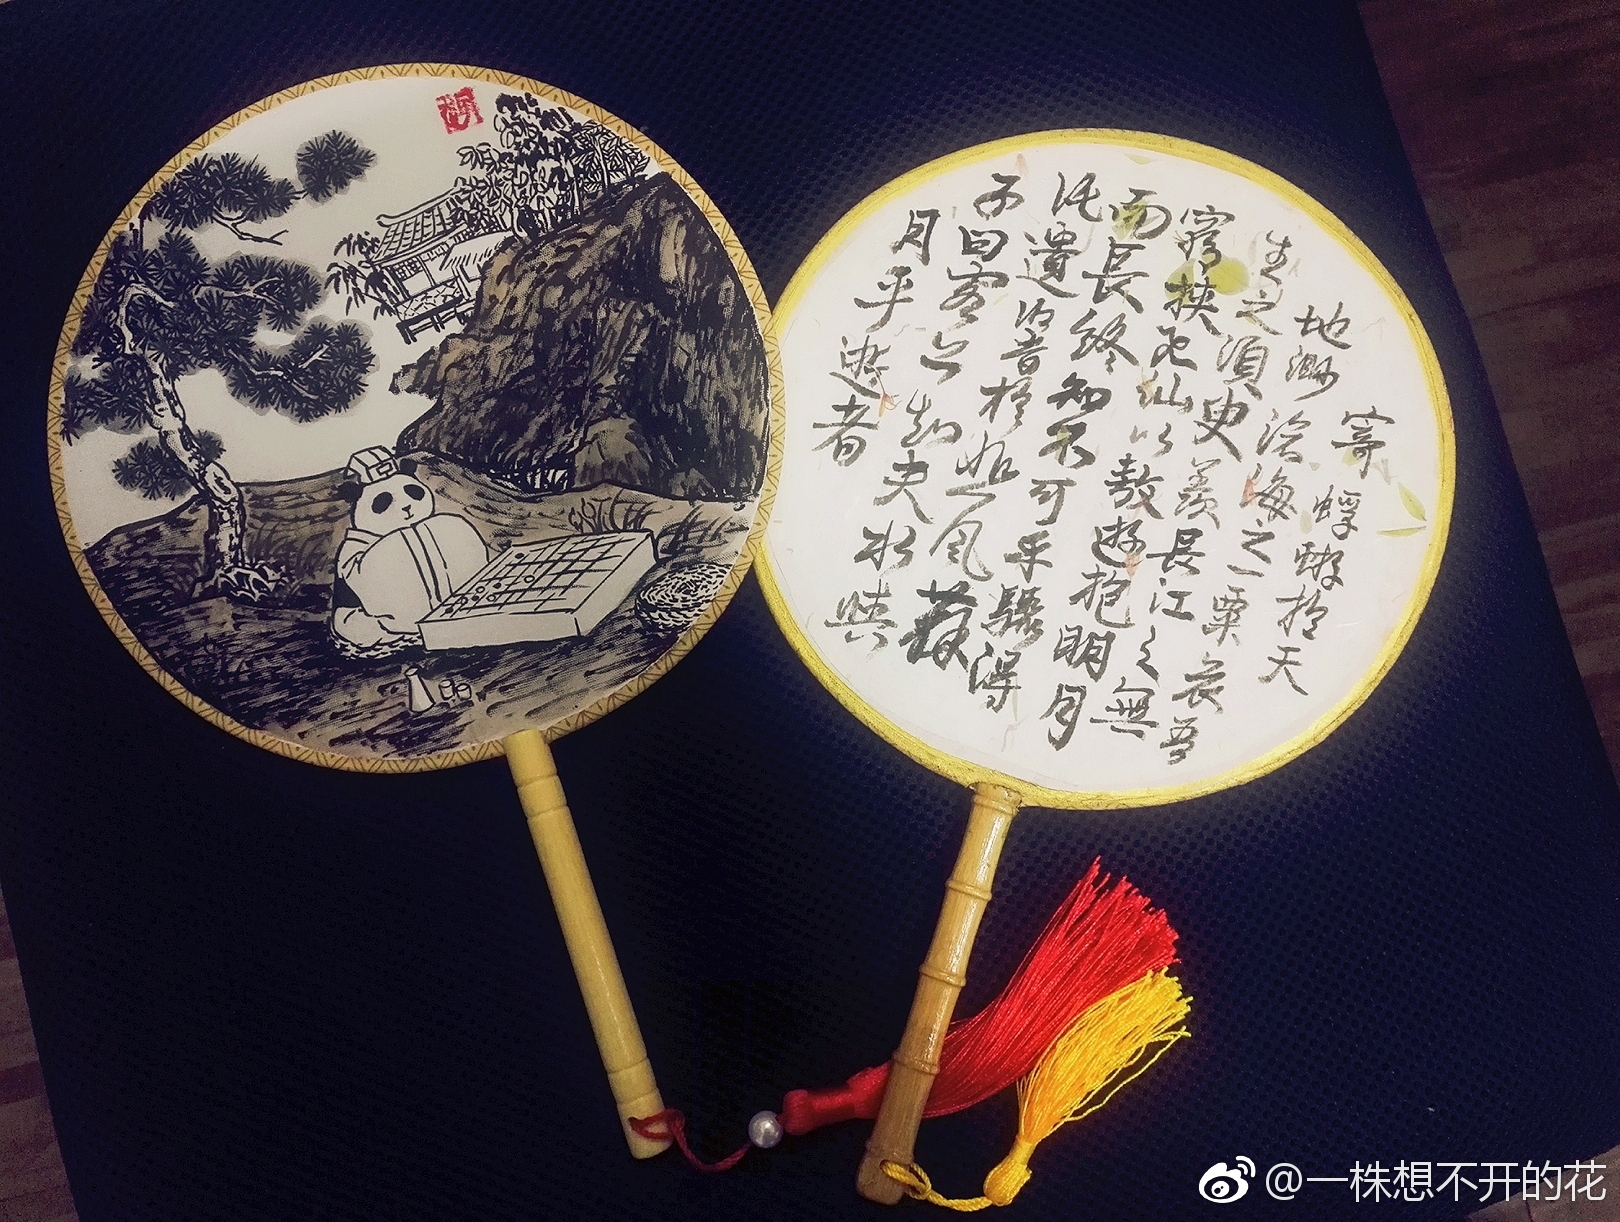 寄蜉蝣於天
地渺滄海之一粟哀吾
生之須臾羨長江之無
窮挾飛仙以遨遊抱明月
而長終知不可乎驟得
託遺響於悲風蘇
子曰客亦知夫水與
月乎逝者
@一株想不开的花